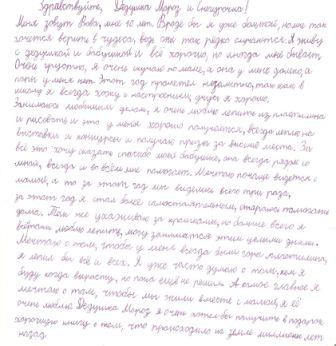 Здравствуйте, Дедушка Мороз и Снегурочка!
Меня зовут Вова, мне 10 лет. Вроде бы я уже большой, но мне так
хочется верить в чудеса, ведь они так редко случаются. Я живу
с дедушкой и бабушкой и всё хорошо, но иногда мне бывает
очень грустно, я очень скучаю по маме, а она у меня далеко, а
папы у меня нет. Этот год пролетел незаметно, так как в
школу я всегда хожу с настроением, учусь я хорошо.
Занимаюсь любимым делом, я очень люблю лепить из пластилина
и рисовать и это у меня хорошо получается, всегда леплю на
выставки и конкурсы и получаю призы за высокие места. За
всё это хочу сказать спасибо моей бабушке, она всегда рядом со
мной, всегда и во всём мне помогает. Мечтаю почаще видется с
мамой, а то за этот год мы виделись всего три раза,
за этот год я стал более самостоятельнее, стараюсь помогать
дома. Так же ухаживаю за но больше всего я
люблю лепить, могу заниматся этим целыми днями.
Мечтаю о том, чтобы у меня всегда было гора пластилина,
я лепил бы всё и всех. Я уже часто думаю о том, кем я
буду когда вырасту, но пока ещё не решил. А самое главное я
мечтаю о том, чтобы мы жили вместе с мамой, я её
очень люблю. Дедушка Мороз я очень хотел бы получить в подарок
хорошую книгу о том, что происходило на земле миллионы лет
назад.